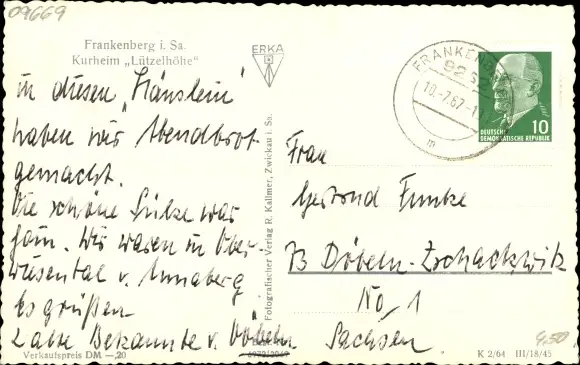 09669
Frankenberg i. Sa.
Kurheim „Lützelhöhe"
ERKA
in diesen „Häuslein"
haben wir Abendbrot
gemacht.
Die schöne Sülze war
fein. Wir waren in Ober-
wiesental v. Annaberg
Es grüßen
2 alte Bekannte v. Döbeln.
Verkaufspreis DM —,20
Fotografischer Verlag R. Kallmer, Zwickau i. Sa.
FRANKENBERG
10.-7.67.-1
m
10
DEUTSCHE
DEMOKRATISCHE REPUBLIK
Frau
Gertrud Funke
73 Döbeln-Zschackwitz
No 1
Sachsen
4.50
K 2/64 III/18/45